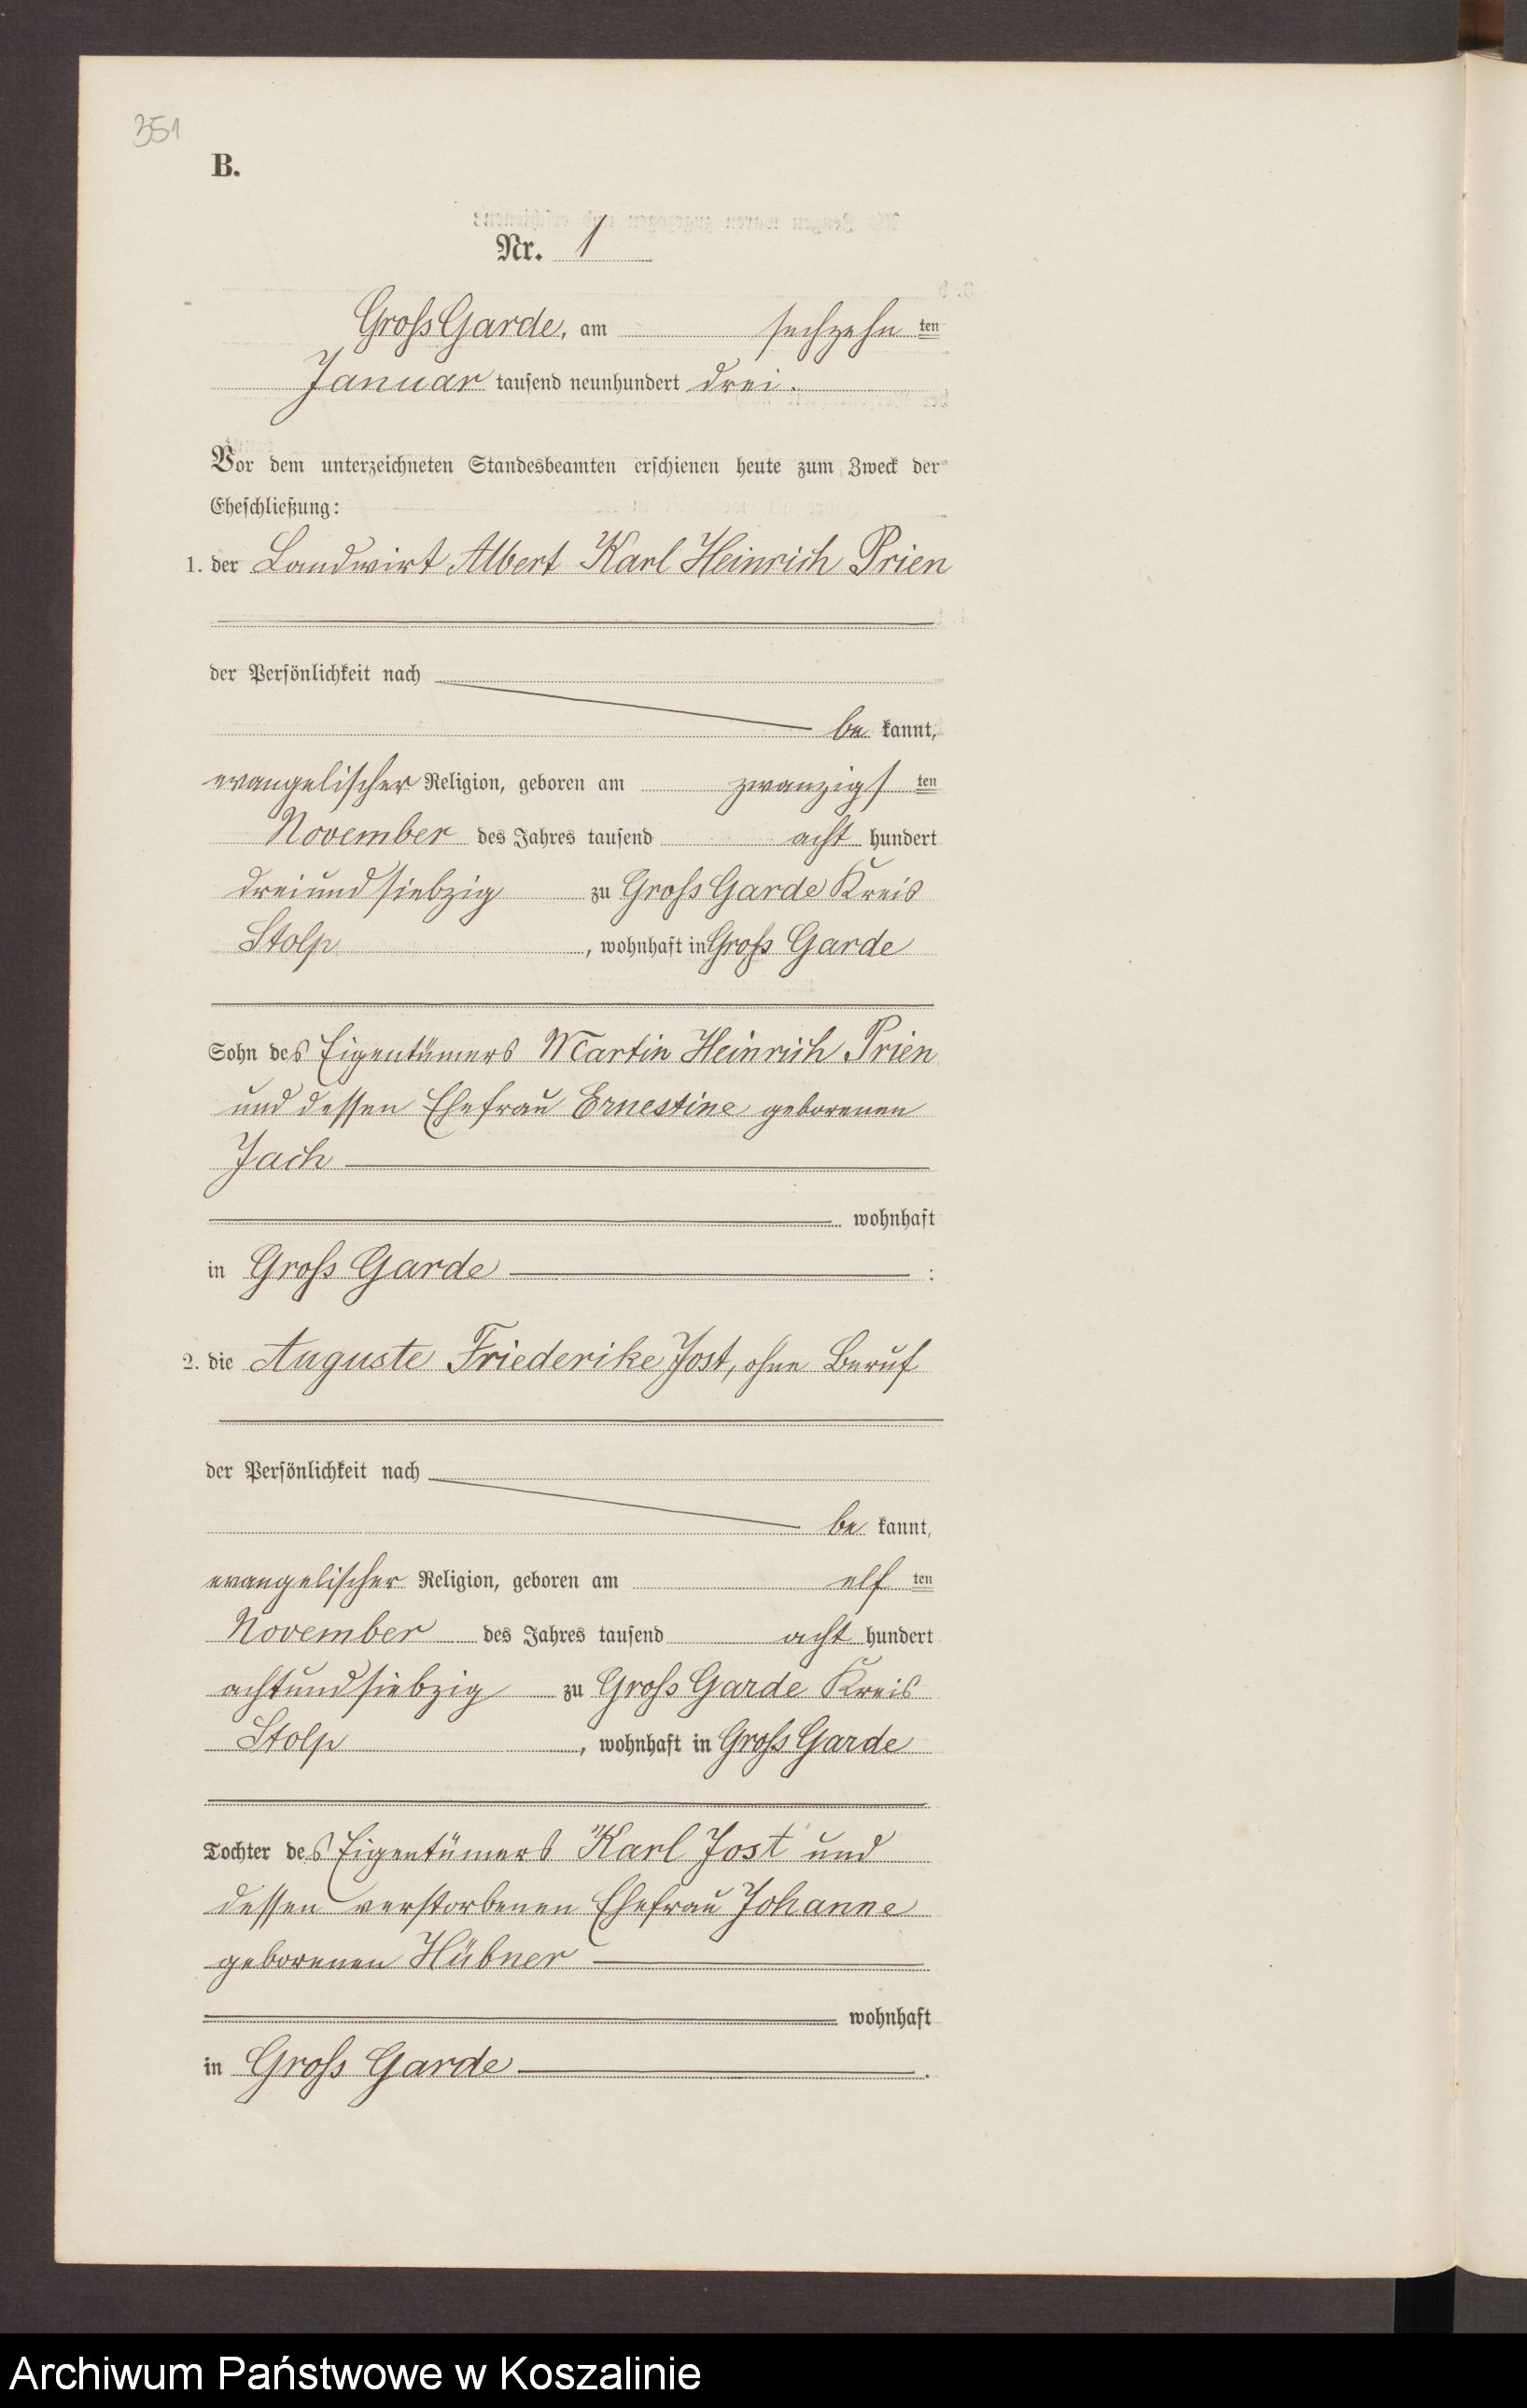 351
B.
Nr. 1
Gross Garde, am sechzehn ten
Januar tausend neunhundert drei.
Vor dem unterzeichneten Standesbeamten erschienen heute zum Zweck der
Eheschließung:
1. der Landwirt Albert Karl Heinrich Prien
der Persönlichkeit nach
be kannt,
evangelischer Religion, geboren am zwanzigs ten
November des Jahres tausend acht hundert
dreiundsiebzig zu Gross Garde Kreis
Stolp, wohnhaft in Gross Garde
Sohn des Eigentümers Martin Heinrich Prien
und dessen Ehefrau Ernestine geborenen
Jach
wohnhaft
in Gross Garde :
2. die Auguste Friederike Jost, ohne Beruf
der Persönlichkeit nach
be kannt,
evangelischer Religion, geboren am elf ten
November des Jahres tausend acht hundert
achtundsiebzig zu Gross Garde Kreis
Stolp, wohnhaft in Gross Garde
Tochter des Eigentümers Karl Jost und
dessen verstorbenen Ehefrau Johanne
geborenen Hübner
wohnhaft
in Gross Garde .
Archiwum Państwowe w Koszalinie